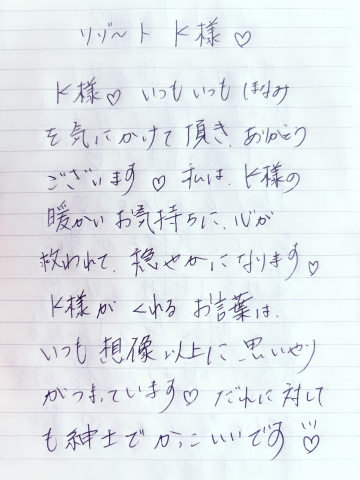 リゾート K様♡
K様♡ いつもいつも ほなみ
を気にかけて頂き、ありがとう
ございます♡ 私は、K様の
暖かいお気持ちに、心が
救われて、穏やかになります♡
K様が くれる お言葉は、
いつも 想像以上に 思いやり
がつまっています♡ だれに対して
も紳士で かっこいいです♡